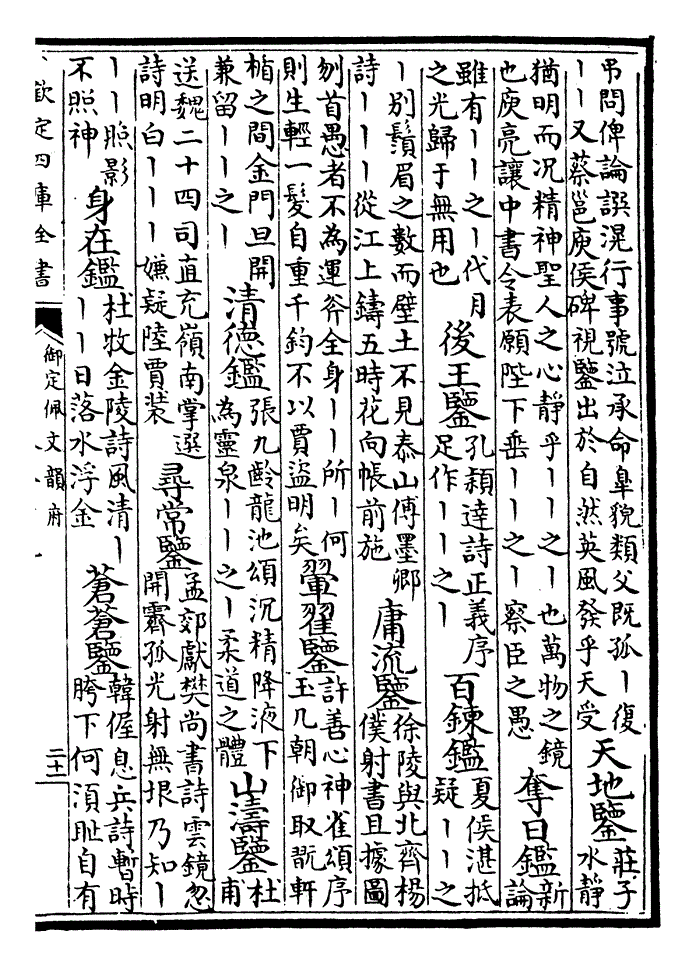 吊問俾論譔滉行事號泣承命臯貌類父既孤丨復
丨丨又蔡邕庾侯碑視鑒出於自然英風發乎天受
天地鑒
莊子
水靜
猶明而况精神聖人之心靜乎丨丨之丨也萬物之鏡
也庾亮讓中書令表願陛下垂丨丨之丨察臣之愚
奪日鑑
新
論
雖有丨丨之丨代月
之光歸于無用也
後王鑒
孔穎達詩正義序
足作丨丨之丨
百鍊鑑
夏侯湛抵
疑丨丨之
丨別鬚眉之數而壁土不見泰山傅墨卿
詩丨丨丨從江上鑄五時花向帳前施
庸流鑒
徐陵與北齊楊
僕射書且據圖
刎首愚者不為運斧全身丨丨所丨何
則生輕一髮自重千鈞不以賈盜明矣
翬翟鑒
許善心神雀頌序
玉几朝御取翫軒
楯之間金門旦開
兼留丨丨之丨
清德鑑
張九齡龍池頌沉精降液下
為靈泉丨丨之丨柔道之體
山濤鑒
杜
甫
送魏二十四司直充嶺南掌選
詩明白丨丨丨嫌疑陸賈裝
尋常鑒
孟郊獻樊尚書詩雲鏡忽
開霽孤光射無垠乃知丨
丨丨照影
不照神
身在鑑
杜牧金陵詩風清丨
丨丨日落水浮金
蒼蒼鑒
韓偓息兵詩暫時
胯下何須恥自有
欽定四庫全書
御定佩文韻府
二十一